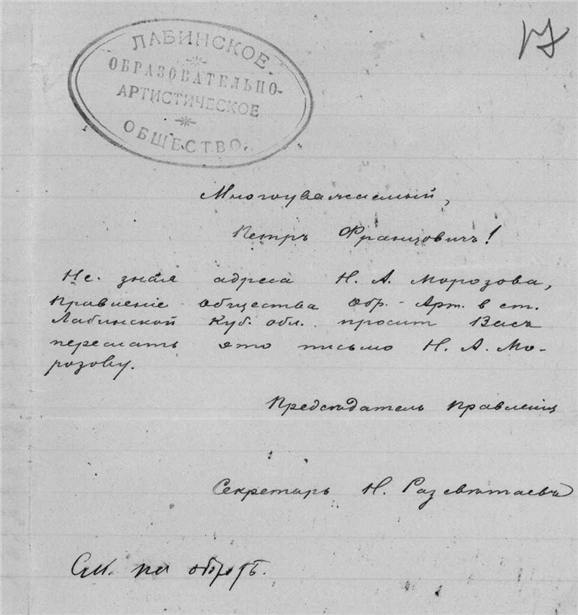 ЛАБИНСКОЕ
ОБРАЗОВАТЕЛЬНО-
АРТИСТИЧЕСКОЕ
ОБЩЕСТВО.
Многоуважаемый,
Петръ Францовичъ!
Не зная адреса Н. А. Морозова,
Правленіе общества Обр.-Арт. в ст.
Лабинской Куб. обл. просит Васъ
переслать это письмо Н. А. Мо-
розову.
Председатель Правленія
Секретарь Н.
См. на оборотѣ.